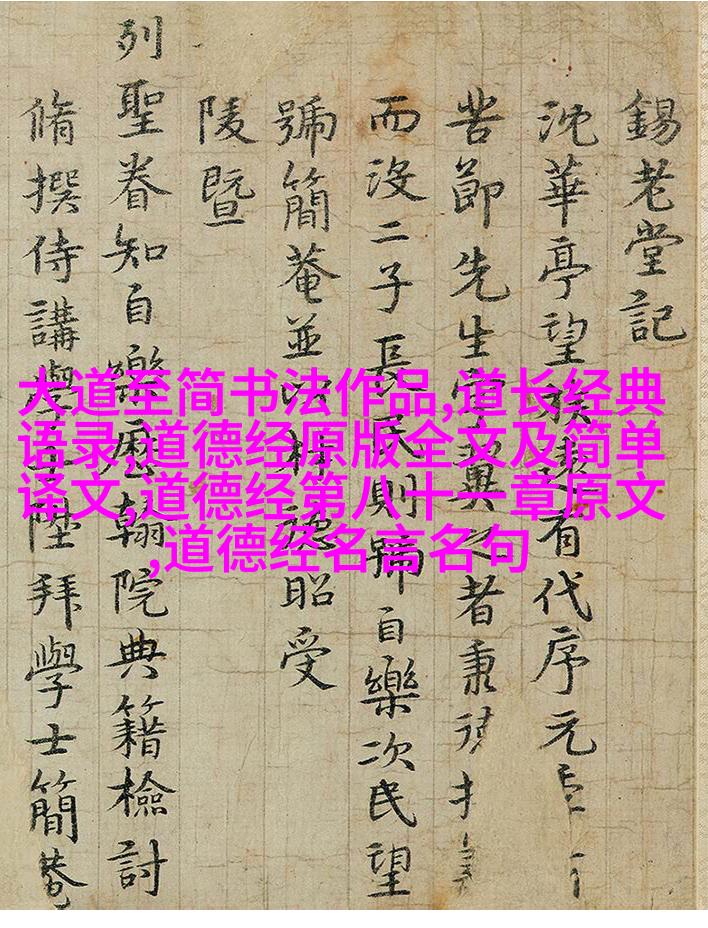 錫老堂記
沈華亭望族遠有代序元
苦節先生字翼之者秉
而沒二子長民則號自樂次民望
號簡菴並以材德昭受
陵暨
列聖眷知自樂歷翰院典籍檢討
脩撰侍講學陞拜學士簡菴
大道至简书法作品,道长经典
语录,道德经原版全文及简单
译文,道德经第八十一章原文
,道德经名言名句